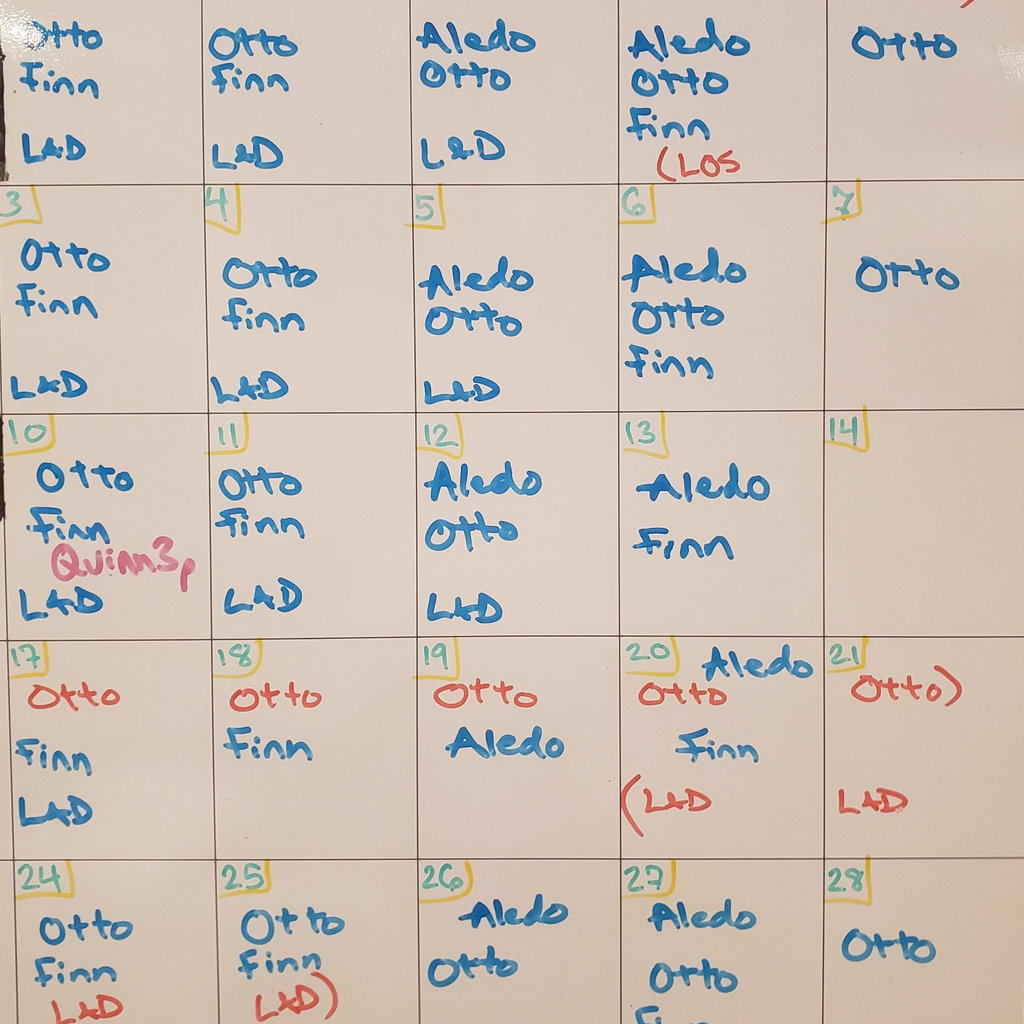 Otto
Finn
L&D
Otto
Finn
L&D
Aledo
Otto
L&D
Aledo
Otto
Finn
(LOS
Otto
3
Otto
Finn
L&D
4
Otto
Finn
L&D
5
Aledo
Otto
L&D
6
Aledo
Otto
Finn
7
Otto
10
Otto
Finn
Quinn 3p
L&D
11
Otto
Finn
L&D
12
Aledo
Otto
L&D
13
Aledo
Finn
14
17
Otto
Finn
L&D
18
Otto
Finn
19
Otto
Aledo
20
Aledo
Otto
Finn
(L&D
21
Otto)
L&D
24
Otto
Finn
L&D
25
Otto
Finn
L&D)
26
Aledo
Otto
27
Aledo
Otto
Finn
28
Otto